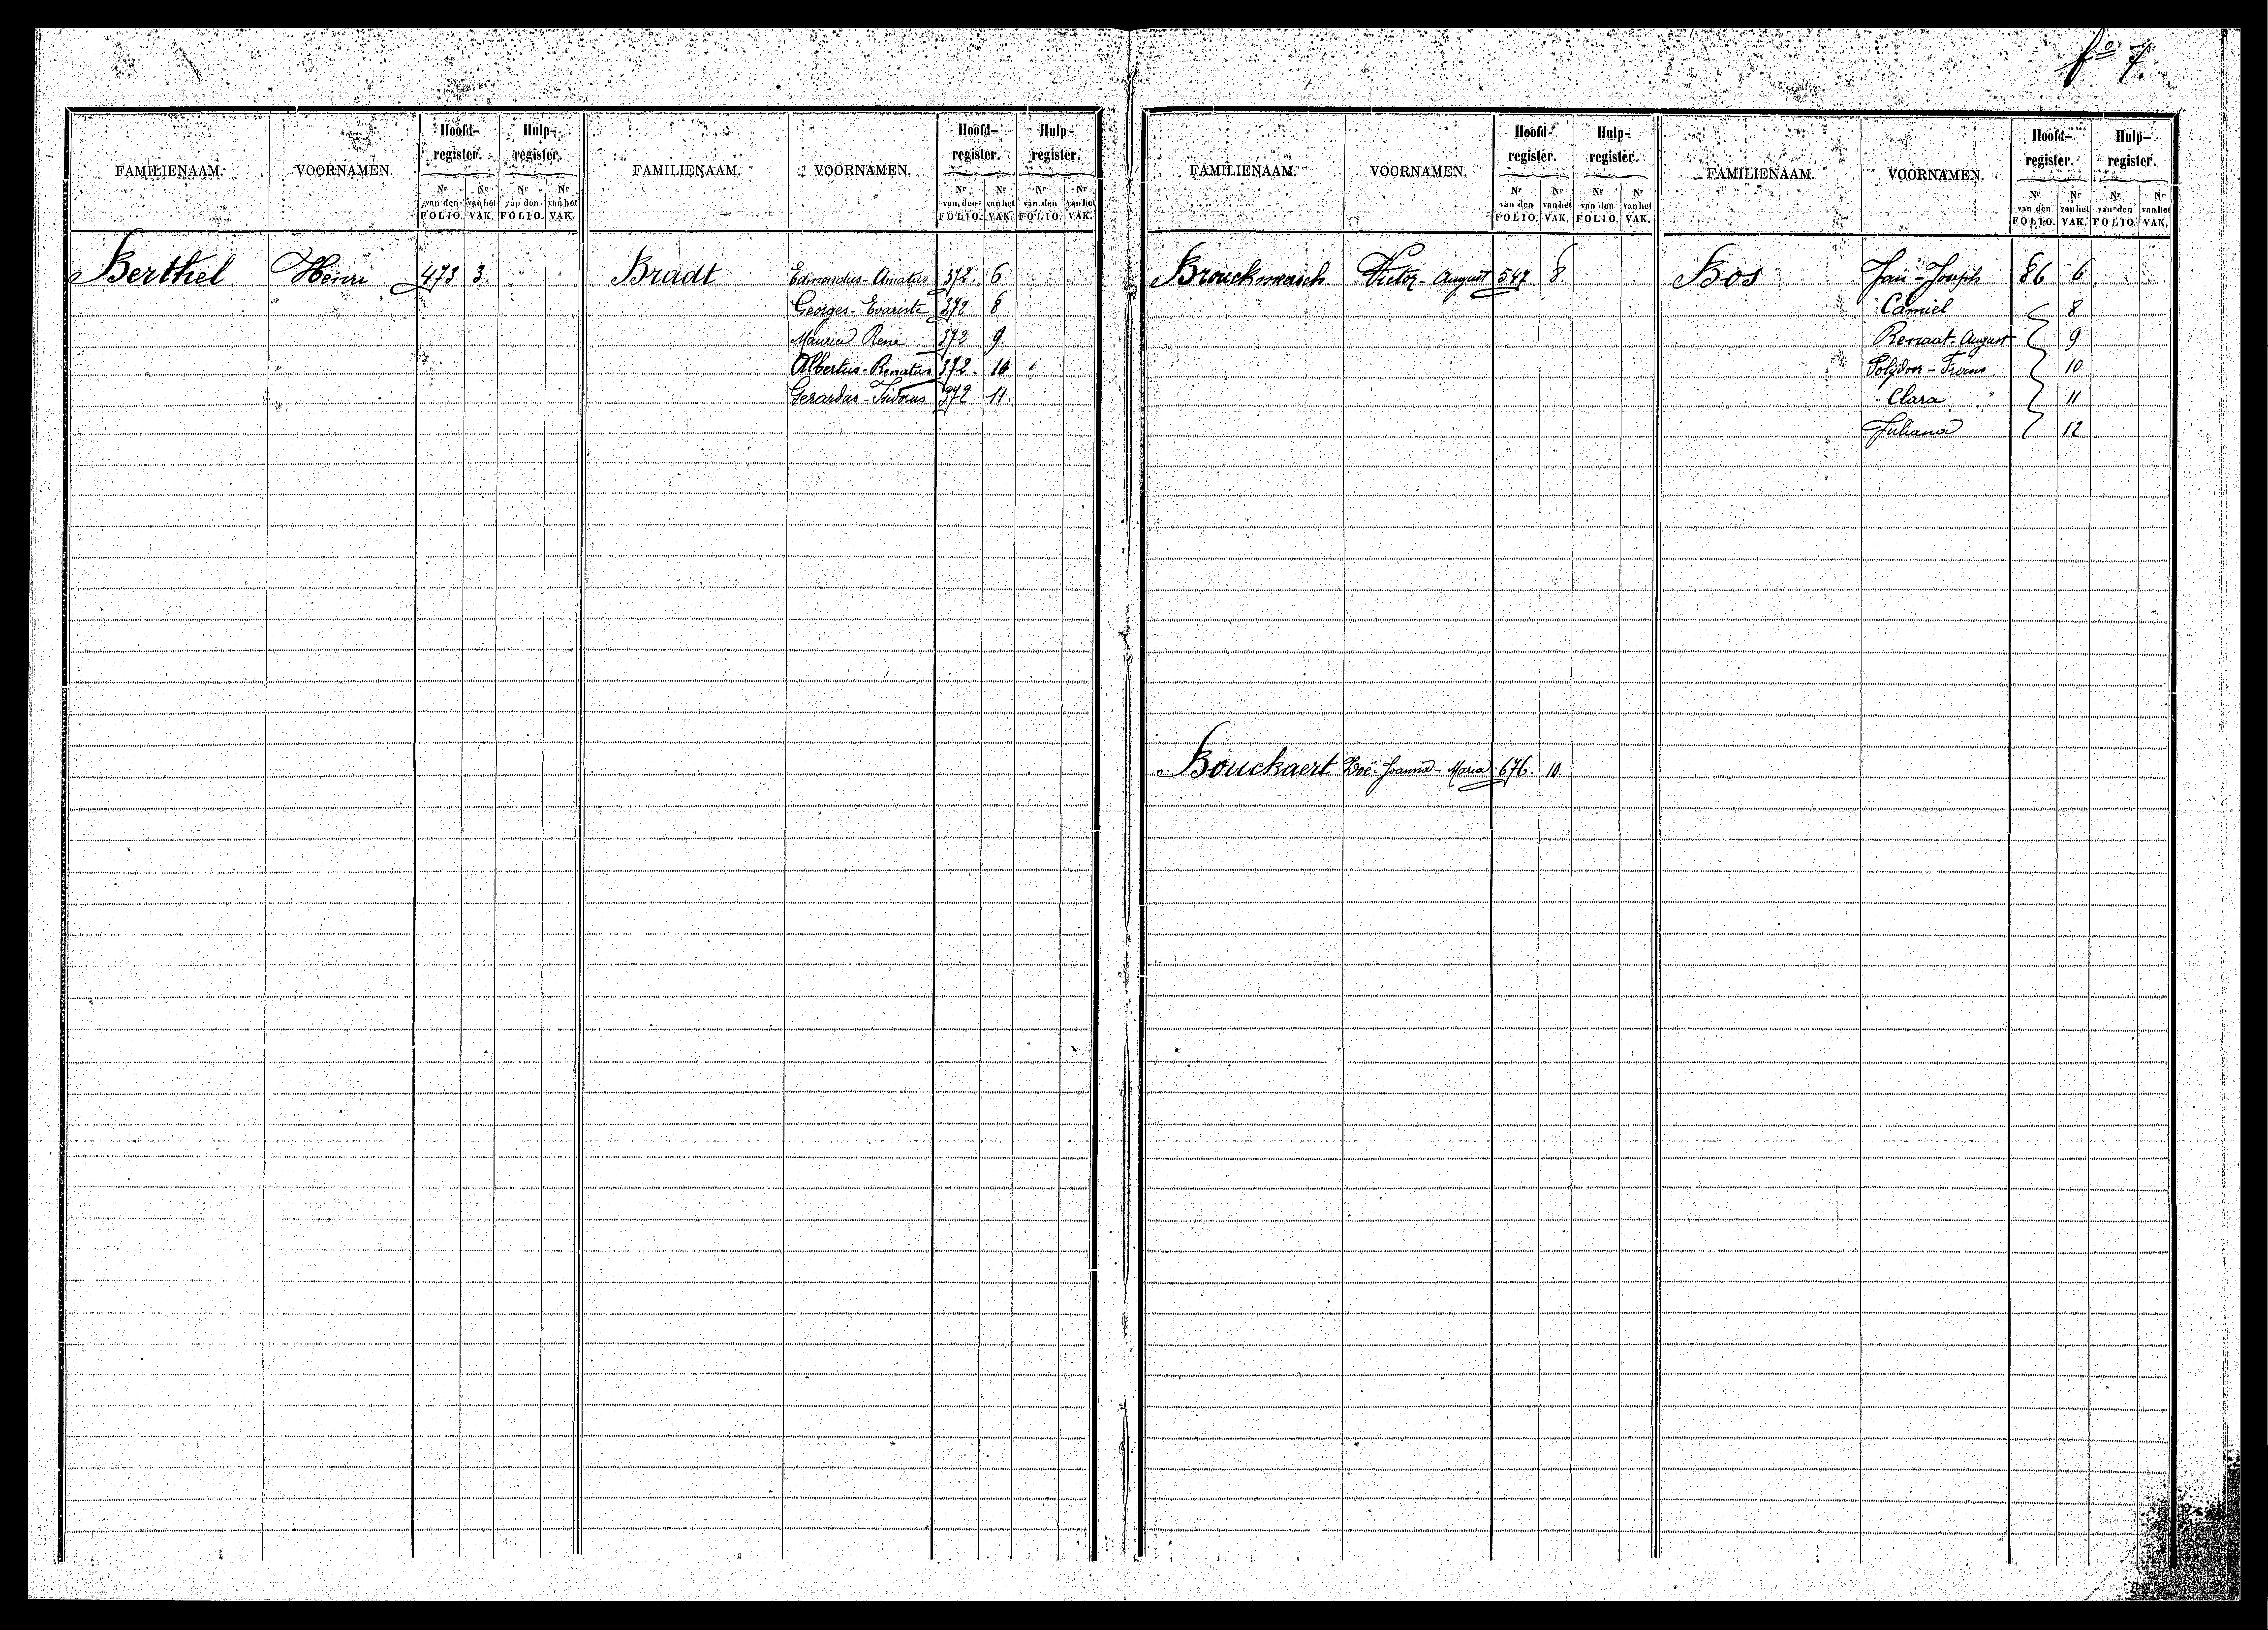 fº 7
FAMILIENAAM. VOORNAMEN. Hoofd-register. Hulp-register.
Nr van den FOLIO. Nr van het VAK. Nr van den FOLIO. Nr van het VAK.
Berthel Henri 473 3.
FAMILIENAAM. VOORNAMEN. Hoofd-register. Hulp-register.
Nr van den FOLIO. Nr van het VAK. Nr van den FOLIO. Nr van het VAK.
Bradt Edmondus-Amatus 372. 6
Georges-Evariste 372 8
Maurice René 372 9.
Albertus-Renatus 372. 10
Gerardus-Isidorus 372 11.
FAMILIENAAM. VOORNAMEN. Hoofd-register. Hulp-register.
Nr van den FOLIO. Nr van het VAK. Nr van den FOLIO. Nr van het VAK.
Brouckmeersch Victor-August 547. 8.
Bouckaert Zoë-Joanna-Maria 676. 10.
FAMILIENAAM. VOORNAMEN. Hoofd-register. Hulp-register.
Nr van den FOLIO. Nr van het VAK. Nr van den FOLIO. Nr van het VAK.
Bos Jan-Joseph 86 6
Camiel 8
Renaat-August 9
Polydoor- 10
Clara 11
Juliana 12